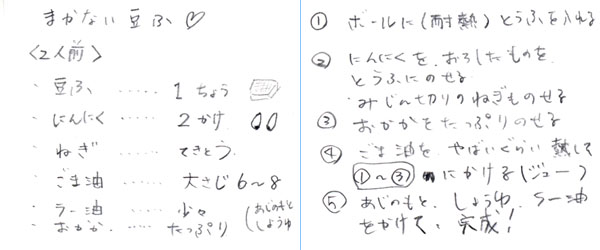 まかない豆ふ♡
<2人前>
・豆ふ …… 1ちょう
・にんにく …… 2かけ
・ねぎ …… てきとう
・ごま油 …… 大さじ6〜8
・ラー油 …… 少々
・おかか …… たっぷり
(あじのもと
しょうゆ
① ボールに(耐熱)とうふを入れる
② にんにくを、おろしたものを、
とうふにのせる
みじん切りのねぎものせる
③ おかかをたっぷりのせる
④ ごま油を、やばいぐらい熱して
①〜③にかける(ジュー)
⑤ あじのもと、しょうゆ、ラー油
をかけて、完成!